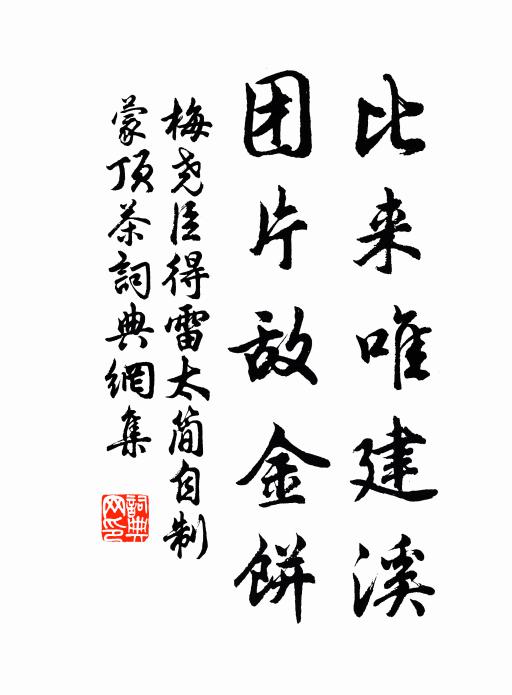 比来唯建溪
团片敌金餅
梅尧臣得雷太简自制
蒙顶茶詞典網集
詞典网印